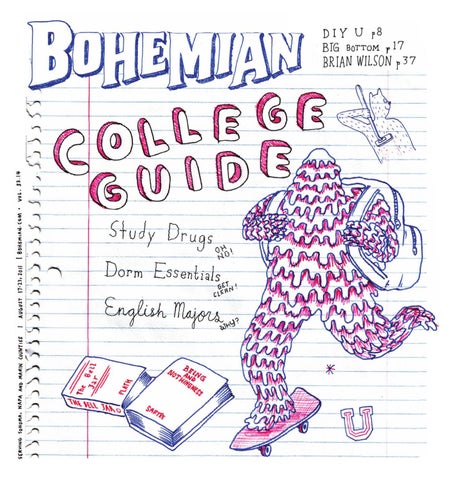 BOHEMIAN
DIY U p8
BIG BOTTOM p17
BRIAN WILSON p37
COLLEGE
GUIDE
Study Drugs
OH NO!
Dorm Essentials
GET CLEAN!
English Majors
Why?
The Bell Jar
PLATH
THE BELL JAR
BEING AND NOTHINGNESS
SARTRE
U
SERVING SONOMA, NAPA AND MARIN COUNTIES | AUGUST 17-23, 2011 | BOHEMIAN.COM • VOL. 33.14